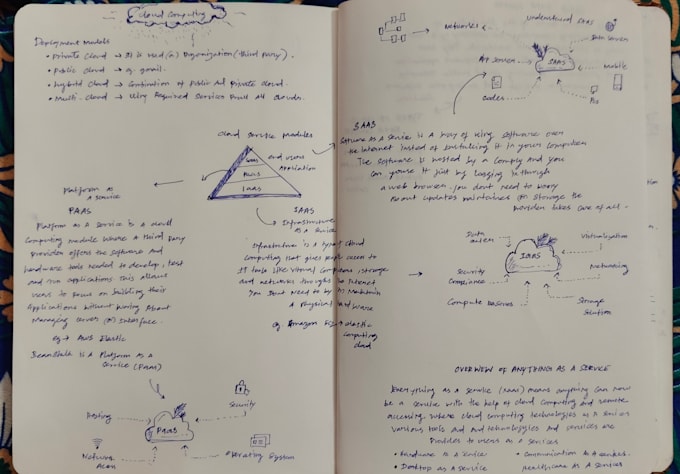 Cloud Computing
Deployment Models
• Private Cloud → It is Used Organization (Third Party).
• Public Cloud → eg. gmail.
• Hybrid Cloud → Combination of Public And Private Cloud.
• Multi-Cloud → Using Required Services From All Clouds.
Cloud Service modules
SAAS
PAAS
IAAS
end users
Application
Platform as
a service
PAAS
Platform As A Service is A cloud
Computing module where A third Party
Provider offers the Software And
hardware tools needed to develop, test
and run applications This allows
users to focus on building their
Applications without About
Managing server (or)
eg → AWS Elastic
BeanStalk is A Platform As A
Service (PAAS)
IAAS
Infrastructure
as a Service
Infrastructure is A type of cloud
Computing that gives people access to
IT tools like virtual Computers, storage
and networks through the Internet
You Dont Need to by Maintain
A Physical
eg Amazon elastic
Computing
cloud
Hosting
Security
PAAS
Network
Operating System
Networks
SAAS
Data Server
App Server
Mobile
SAAS
Software As A Service is A way of using software over
the Internet Instead of Installing It in your Computer
The Software is hosted by a and you
can use It just by logging in through
a web browser. you dont need to worry
About updates or Storage the
takes care of all.
Data
Virtualization
IAAS
Security
Compliance
Networking
Compute
Storage
Solution
OVERVIEW OF ANYTHING AS A SERVICE
Everything as a Service (XaaS) means anything can now
be a service with the help of cloud Computing and remote
accessing. where cloud computing technologies
various tools and and services are
to users as a services
• Hardware as a Service • Communication as a service.
• Desktop as a Service healthcare As A Service